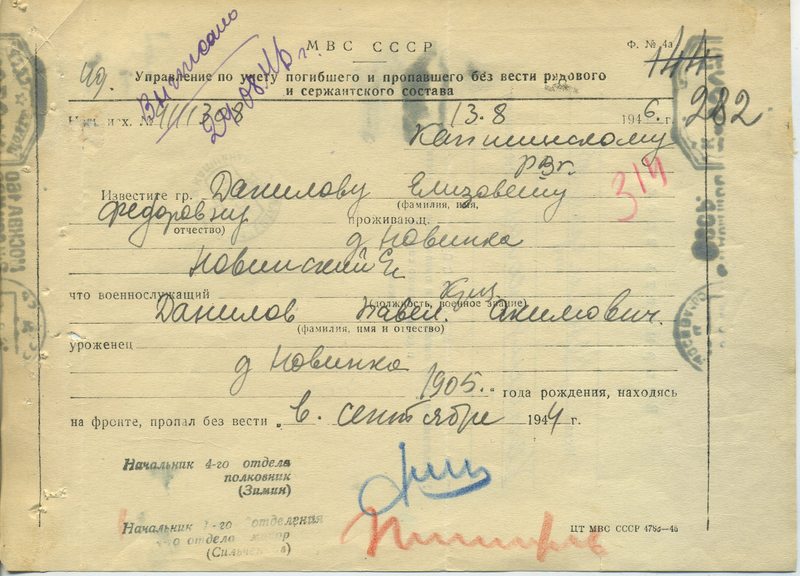 МВС СССР
Ф. № 4а
144
49.
Выписано
29.08.46 г.
Управление по учету погибшего и пропавшего без вести рядового
и сержантского состава
282
13.8 1946 г.
Капшинскому
РВК.
314
Известите гр. Данилову Елизовету
(фамилия, имя,
Федоровну
отчество)
проживающ.
д Новинка
Новинский
что военнослужащий
(должность, военное звание)
Данилов Павел. Акимович.
(фамилия, имя и отчество)
уроженец
д Новинка
1905. года рождения, находясь
на фронте, пропал без вести „в. сентябре 1941 г.
Начальник 4-го отдела
полковник
(Зимин)
Начальник 1-го отделения
отдела майор
ЦТ МВС СССР 4785—46